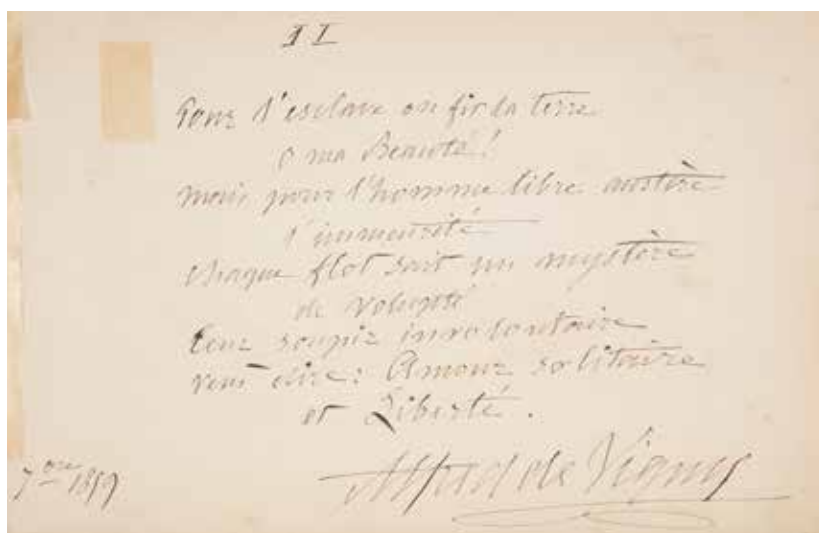 II
Pour l'esclave on fit la terre
o ma Beauté!
mais pour l'homme libre austère
l'immensité
chaque flot sait un mystère
de volupté
Leur soupir involontaire
veut dire: Amour solitaire
et Liberté.
7bre
Alfred de Vigny